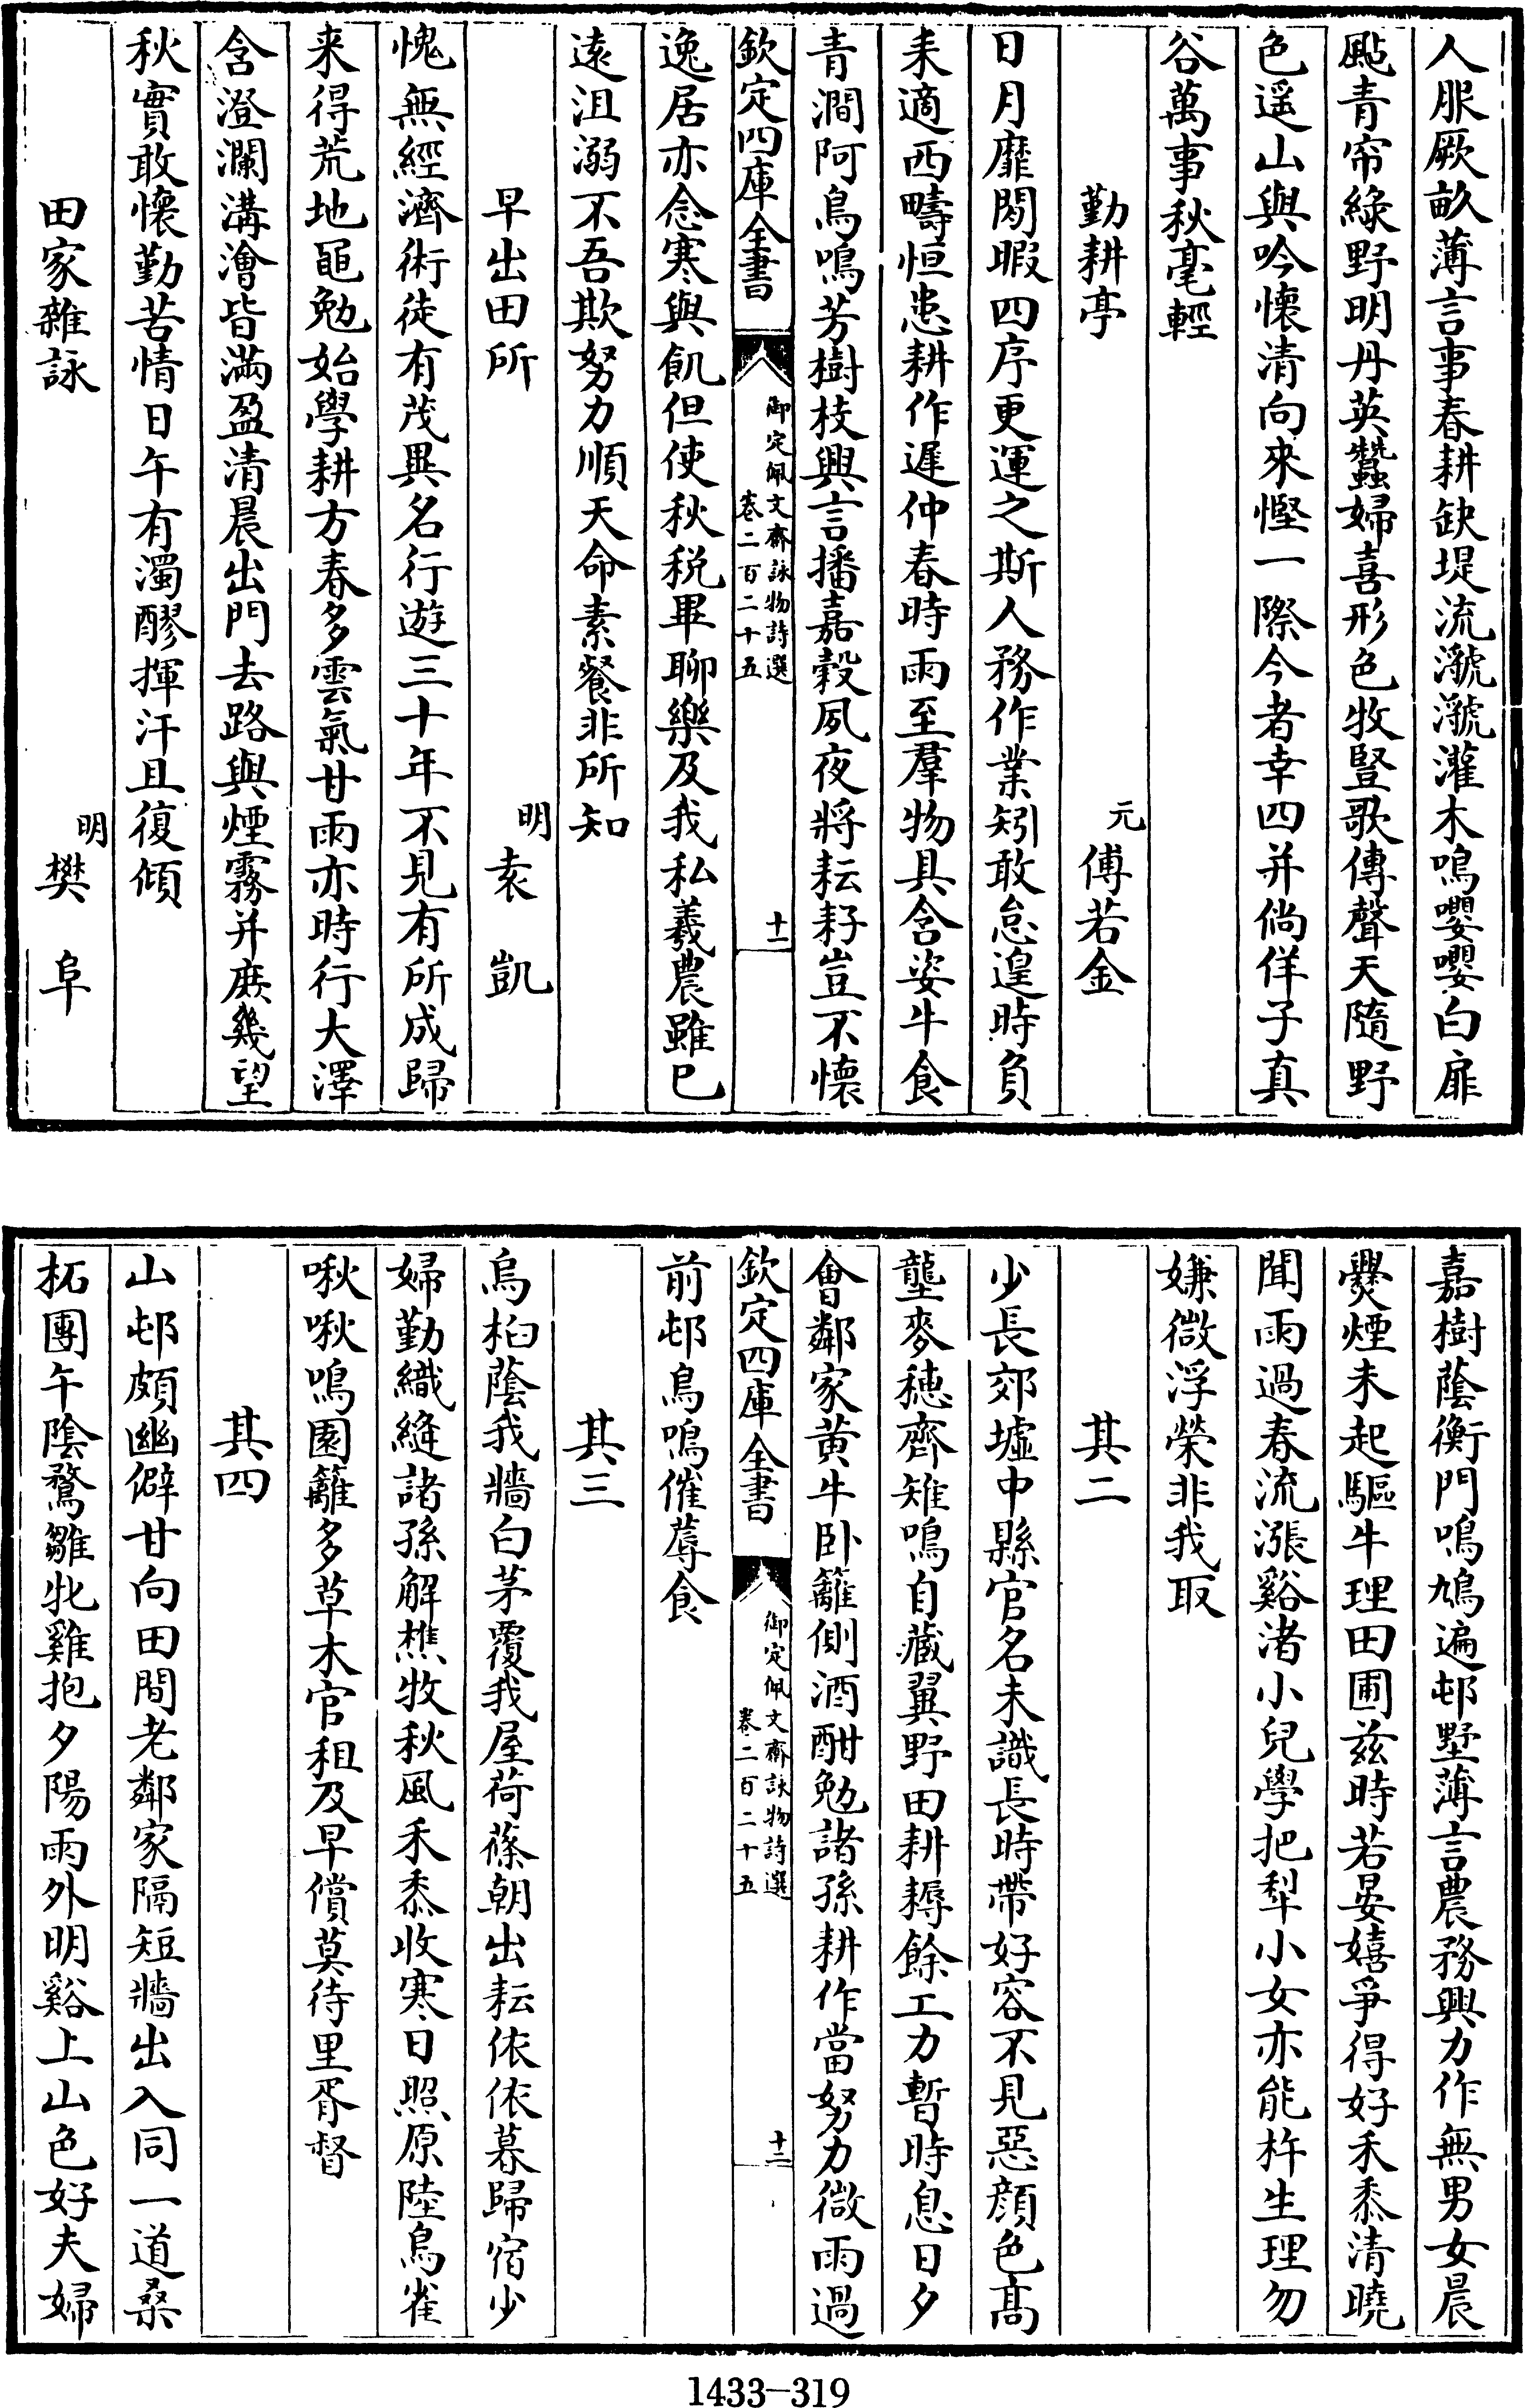 人服厥畝薄言事春耕缺堤流㶁㶁灌木鳴嚶嚶白扉
颭青帘綠野明丹英蠶婦喜形色牧豎歌傳聲天隨野
色遥山與吟懷清向來慳一際今者幸四并倘佯子真
谷萬事秋毫輕
勤耕亭
元
傅若金
日月靡閒暇四序更運之斯人務作業矧敢怠遑時負
耒適西疇恒患耕作遲仲春時雨至羣物具含姿牛食
青澗阿鳥鳴芳樹枝興言播嘉穀夙夜將耘耔豈不懷
欽定四庫全書
御定佩文齋詠物詩選
卷二百二十五
十一
逸居亦念寒與飢但使秋税畢聊樂及我私羲農雖已
遠沮溺不吾欺努力順天命素餐非所知
早出田所
明
袁凱
愧無經濟術徒有茂異名行遊三十年不見有所成歸
来得荒地黽勉始學耕方春多雲氣甘雨亦時行大澤
含澄瀾溝澮皆滿盈清晨出門去路與煙霧并庶幾望
秋實敢懷勤苦情日午有濁醪揮汗且復傾
田家雜詠
明
樊阜
嘉樹蔭衡門鳴鳩遍邨墅薄言農務興力作無男女晨
爨煙未起驅牛理田圃兹時若晏嬉爭得好禾黍清曉
聞雨過春流漲谿渚小兒學把犁小女亦能杵生理勿
嫌微浮榮非我取
其二
少長郊墟中縣官名未識長時帶好容不見惡顔色髙
壟麥穗齊雉鳴自藏翼野田耕耨餘工力暫時息日夕
會鄰家黄牛卧籬側酒酣勉諸孫耕作當努力微雨過
欽定四庫全書
御定佩文齋詠物詩選
卷二百二十五
十二
前邨鳥鳴催蓐食
其三
烏桕蔭我牆白茅覆我屋荷蓧朝出耘依依暮歸宿少
婦勤織縫諸孫解樵牧秋風禾黍收寒日照原陸鳥雀
啾啾鳴園籬多草木官租及早償莫待里胥督
其四
山邨頗幽僻甘向田間老鄰家隔短牆出入同一道桑
柘團午陰鶩雛牝雞抱夕陽雨外明谿上山色好夫婦
1433–319